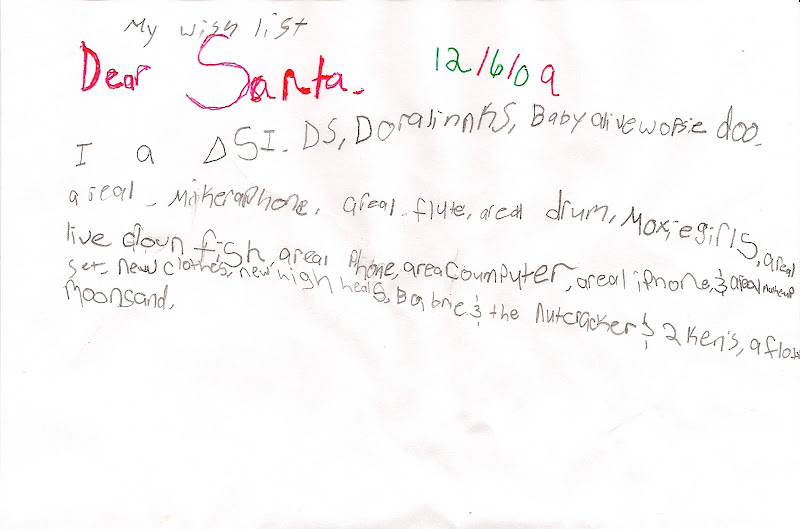 My wish list
Dear Santa. 12/6/09
I a DSI. DS, Doralinnks, Baby alive wopsie doo.
a real makeraphone, a real flute, a real drum, Moxie girls, a real
live clown fish, a real Phone, a real Coumputer, a real iphone, & a real makeup
set, new clothes, new high heals, Babrie & the nutcracker & 2 Ken's, a flo
Moonsand,